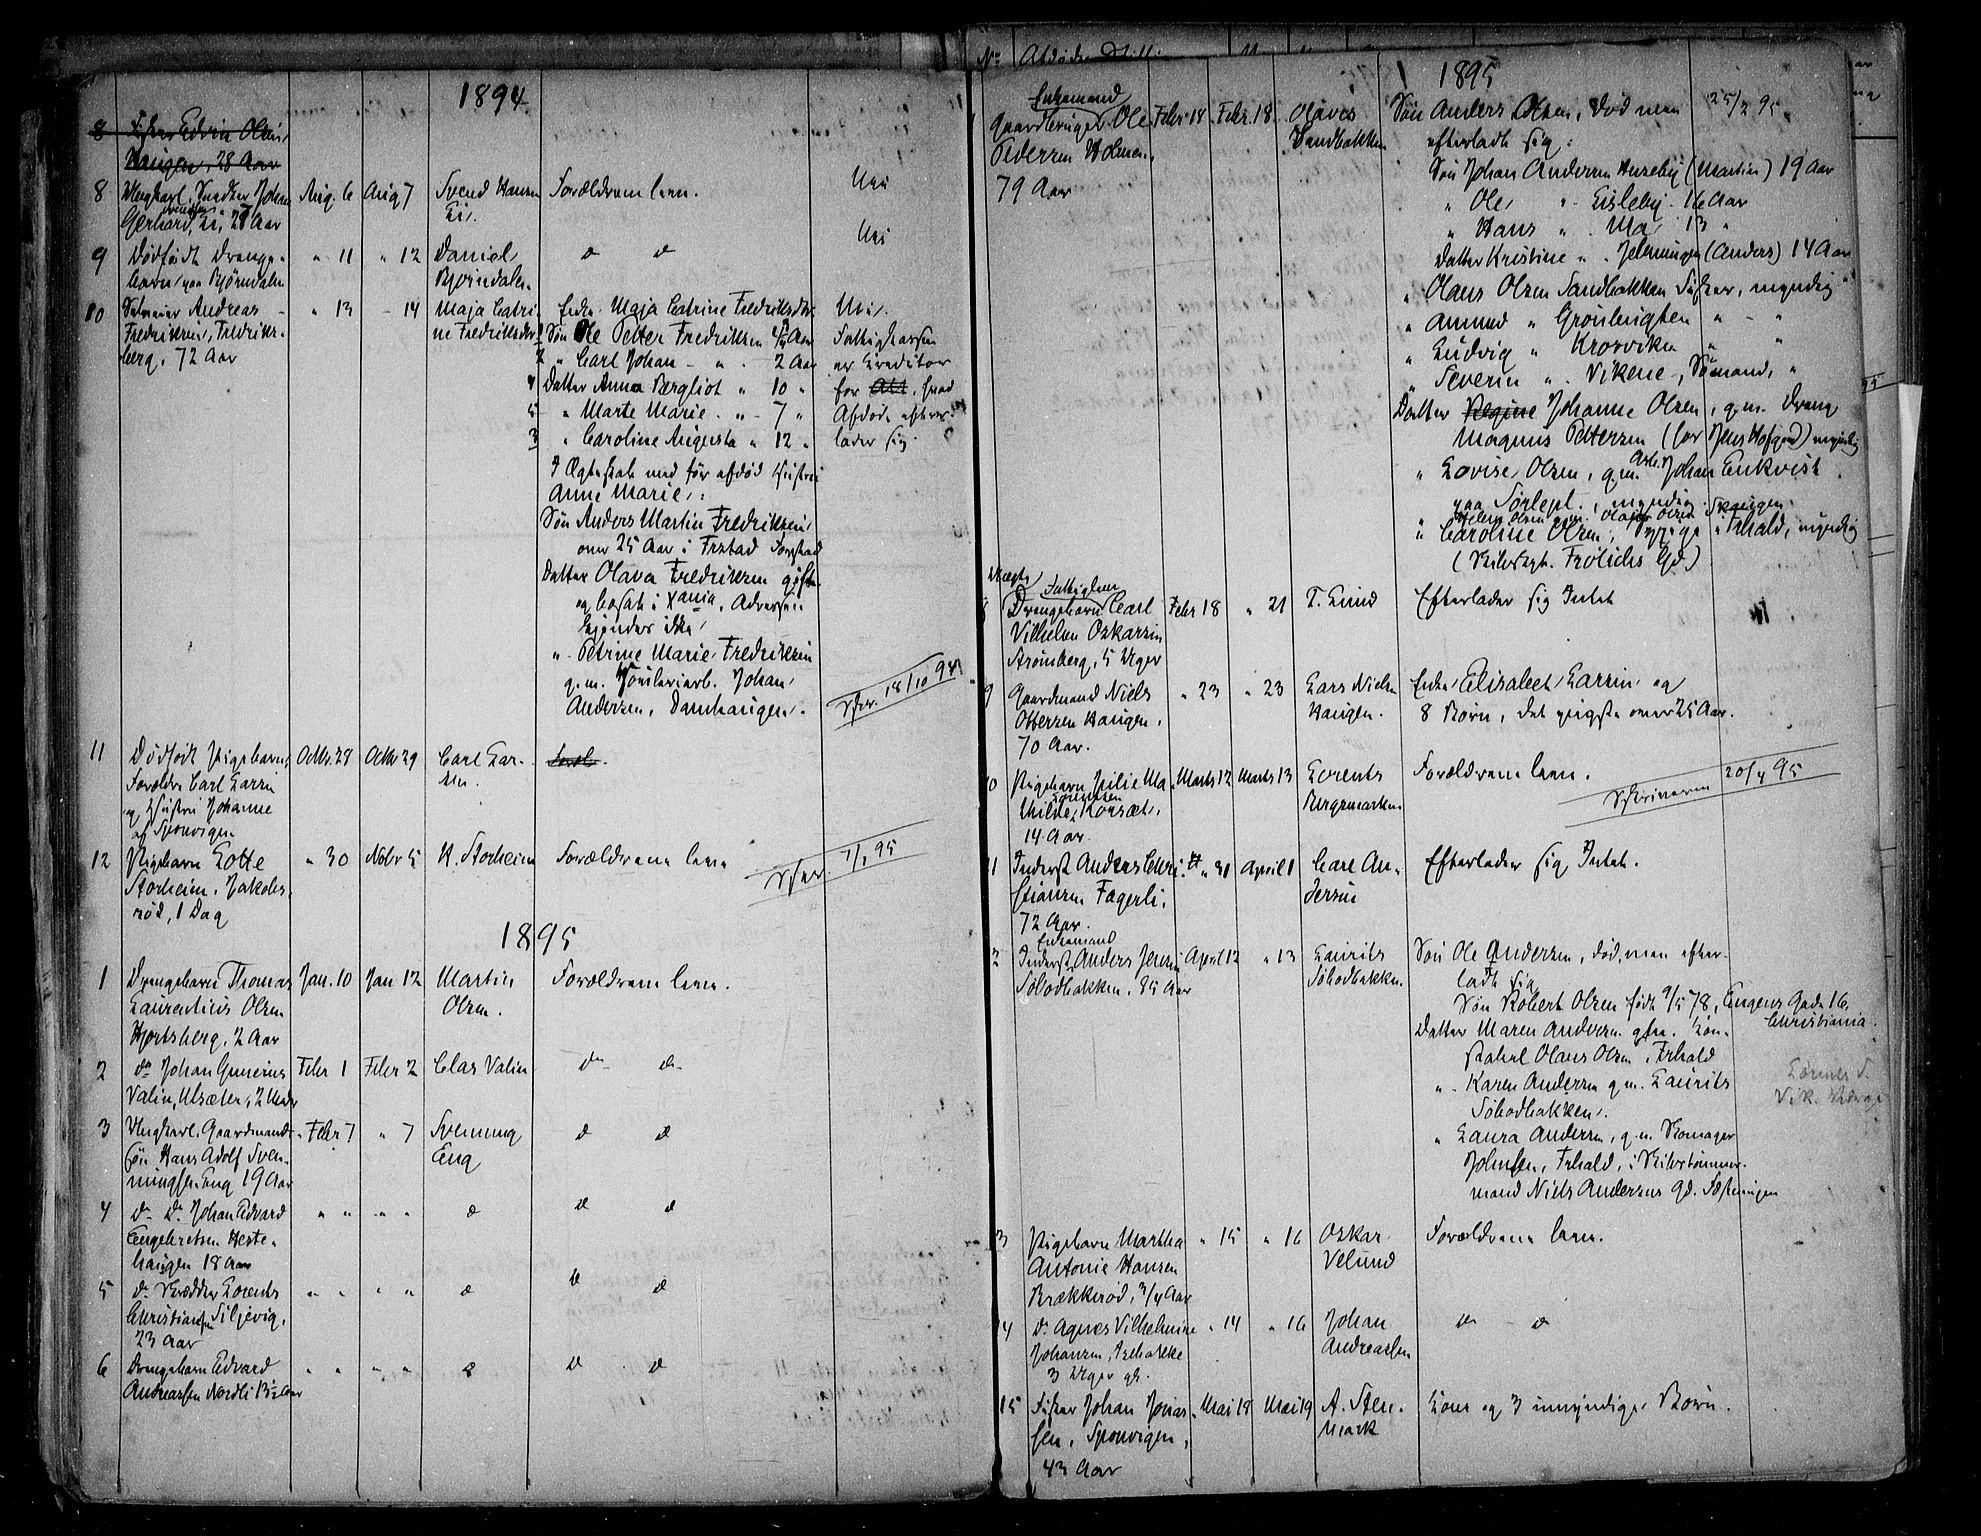 1894
8 Fisker Edvin Olsen
Haugen, 28 Aar
8 Ungkarl. Snedker Johan
Gerhard Svendsen Li, 27 Aar
Aug. 6 Aug 7 Svend Hansen Li. Forældrene leve. Nei
9 Dødfødt Drenge-
barn paa Bjørndalen
" 11 " 12 Daniel Bjørndalen. d d Nei
10 Selveier Andreas
Fredriksen, Fredriks-
berg, 72 Aar
" 13 - 14 Maja Catri-
ne Fredriksdr
Enke Maja Catrine Fredriksdr
1 Søn Ole Petter Fredriksen Aar
2 " Carl Johan - " - 2 Aar
4 Datter Anna Bergliot " 10 "
5 " Marte Marie - " - 7 "
3 " Caroline Augusta " 12 "
I Ægteskab med før afdød Hustru
Anne Marie:
Søn Anders Martin Fredriksen
over 25 Aar i
Datter Olava Fredriksen gift
og bosat i Xania, Adressen
kjendes ikke
" Petrine Marie Fredriksen
g.m. Johan
Andersen, Damhaugen.
Nei.
Fattigkassen
er Creditor
for Alt, hvad
Afdøde efter-
lader sig.
Skr. 18/10 94
11 Dødfødt Pigebarn,
Forældre Carl Larsen
og Hustru Johanne
af Sponvigen
Octbr. 28 Octbr 29 Carl Lar-
sen. Foræl
12 Pigebarn Lotte
Storheim, Jakobs-
rød, 1 Dag
" 30 Novbr 5 H. Storheim Forældrene leve
Skr. 7/1 95
1895
1 Drengebarn Thomas
Laurentius Olsen
Hjortsberg, 2 Aar
Jan. 10 Jan 12 Martin
Olsen. Forældrene leve.
2 do Johan Gunerius
Valin, Ulsæter, 2 Uger
Febr 1 Febr 2 Clas Valin do d-
3 Ungkarl. Gaardmands-
søn Hans Adolf Sven-
ningsen Eng 19 Aar
Febr 7 " 7 Svenning
Eng d d
4 d- do Johan Edvard
Engebretsen Heste-
haugen 18 Aar
" " " " d d d
5 d- Skrædder Lorents
Christiansen Siljevig,
23 Aar
" " " " d d d
6 Drengebarn Edvard
Andreassen Nordli 13½ Aar
" " " " d d d
No Afdødes Stilling
1895
Enkemand
Gaardbruger Ole
Pedersen Holmen,
79 Aar
Febr 18 Febr. 18 Olaves
Sandbakken
Søn Anders Olsen, død men
efterladt sig:
Søn Johan Andersen Huseby (Martin) 19 Aar
" Ole " - Eisleby - 16 Aar
" Hans " . Ma 13 "
Datter Kristine " . Jelmungen (Anders) 14 Aar
" Olaus Olsen Sandbakken Fisker, myndig
" Ammund " Grønbugten " - "
" Ludvig " Krosviken " "
" Severin " . Vikene, Sømand, "
Datter Regine Johanne Olsen, g.m. Dreng
Magnus Pettersen (hos Jens Hofgaard) myndig
" Lovise Olsen, g.m. Arb. Johan Enkvist
paa Sørlept., myndig
" Helene Olsen g.m. Olaf Olsen Skaugen
" Caroline Olsen, Pige, Frhald, myndig
(Skibskapt. Frölichs Gd.)
25/2 95.
Uægte Fattiglem
8 Drengebarn Carl
Vilhelm Oskarsen
Strømberg, 5 Uger
Febr 18 " 21 T. Lund Efterlader sig Intet
9 Gaardmand Niels
Ottersen Haugen,
70 Aar.
" 23 " 23 Lars Nielsen
Haugen.
Enke Elisabeth Larsen og
8 Børn, det yngste over 25 Aar.
10 Pigebarn Julie Ma-
thilde Sørensen Korsæt,
14 Aar.
Marts 12 Marts 13 Lorents
Bergsmarken Forældrene leve.
Skriveren 20/4 95
11 Inderst Anders Chri-
stiansen Fagerli,
72 Aar.
" 31 April 1 Carl An-
dersen Efterlader sig Intet.
Enkemand
2 Inderst Anders Jensen
Søbodbakken, 85 Aar
April 12 " 13 Laurits
Søbodbakken.
Søn Ole Andersen, død, men efter-
ladt sig
Søn Robert Olsen født 9/5 78, Engens Gade 16,
Christiania.
Datter Maren Andersen gift. Kon-
stabel Olaus Olsen, Frhald
" . Karen Andersen g.m. Laurits
Søbodbakken.
" Laura Andersen, g.m. Skomager
Johnsen, Frhald, i Skibstømmer-
mand Niels Andersens Gd. Fæstningen
3 Pigebarn Martha
Antonie Hansen
Brækkerød, 3/4 Aar
" 15 " 16 Oskar
Velund Forældrene leve.
14 do Agnes Vilhelmine
Johansen, Isebakke
3 Uger gl.
" 14 " 16 Johan
Andreassen d - d
15 Fisker Johan Jonas-
sen, Sponvigen,
43 Aar
Mai 18 Mai 19 A. Sten-
mark Kone og 3 umyndige Børn.